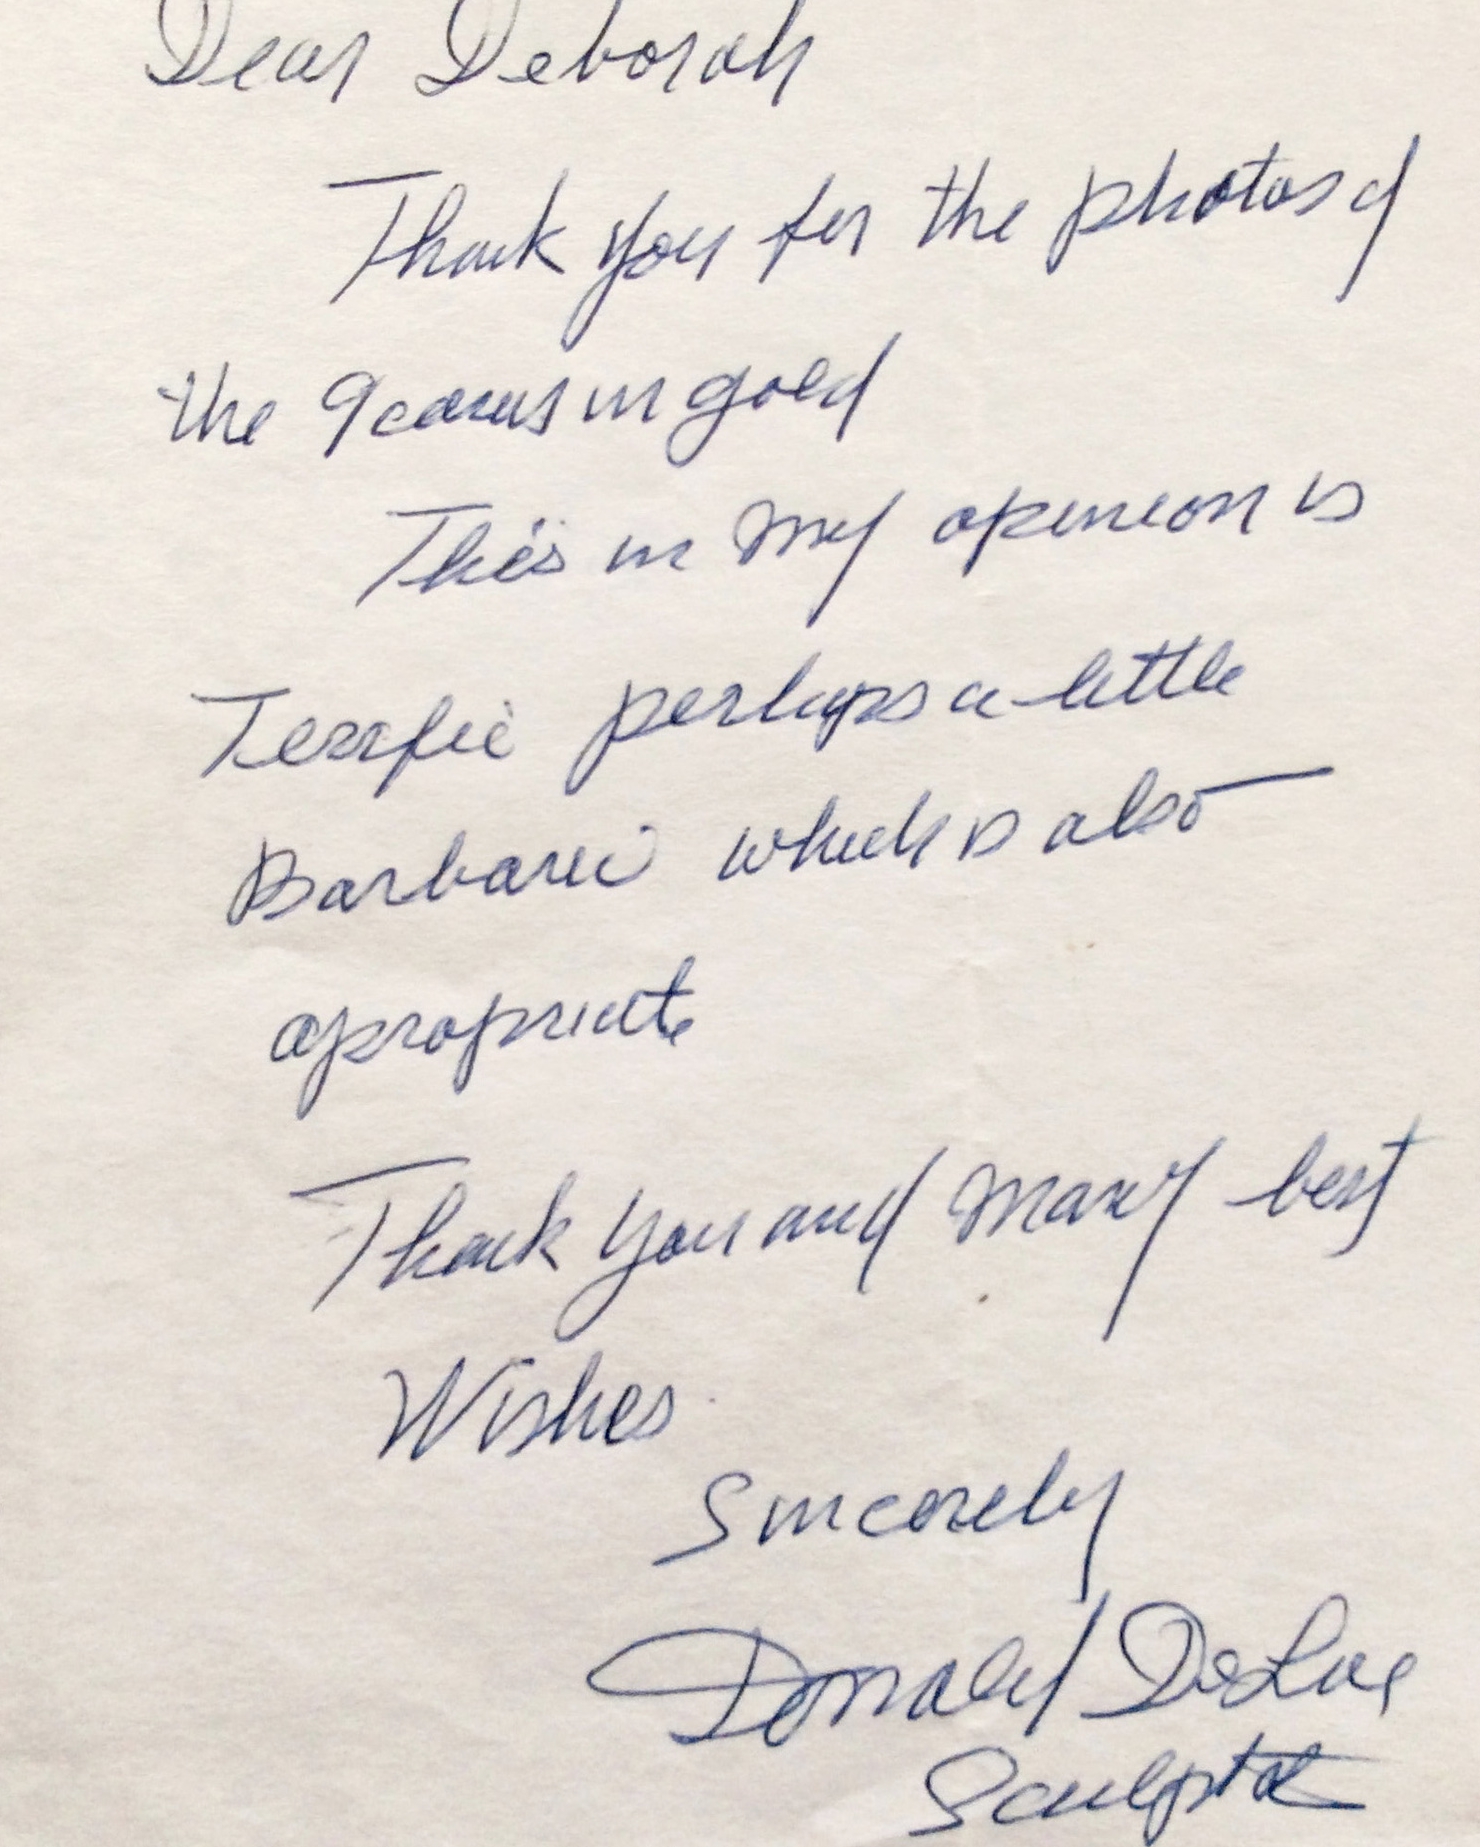 Dear Deborah
Thank you for the photos of
the Icarus in gold
This in my opinion is
Terrfic perhaps a little
Barbaric which is also
apropriate
Thank you and many best
Wishes
Sincerely
Donald DeLue
Sculptor